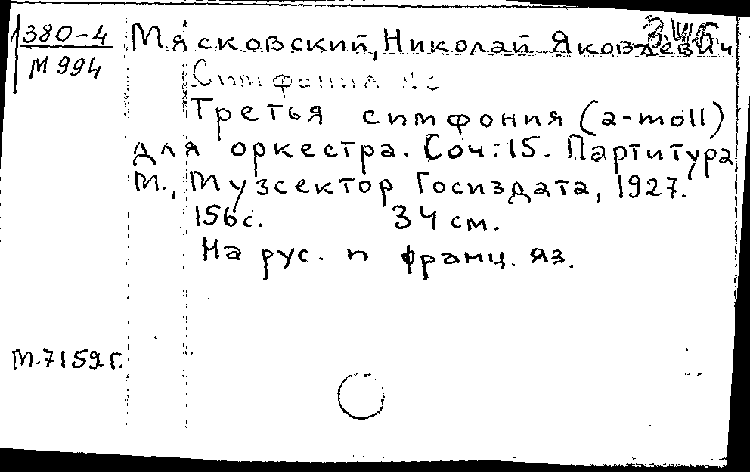 380-4
М994
Мясковский, Николай Яковлевич
Симфония №3
Третья симфония (a-moll)
для оркестра. Соч:15. Партитура
М., Музсектор Госиздата, 1927.
156с. 34 см.
На рус. и франц. яз.
М.7159г.